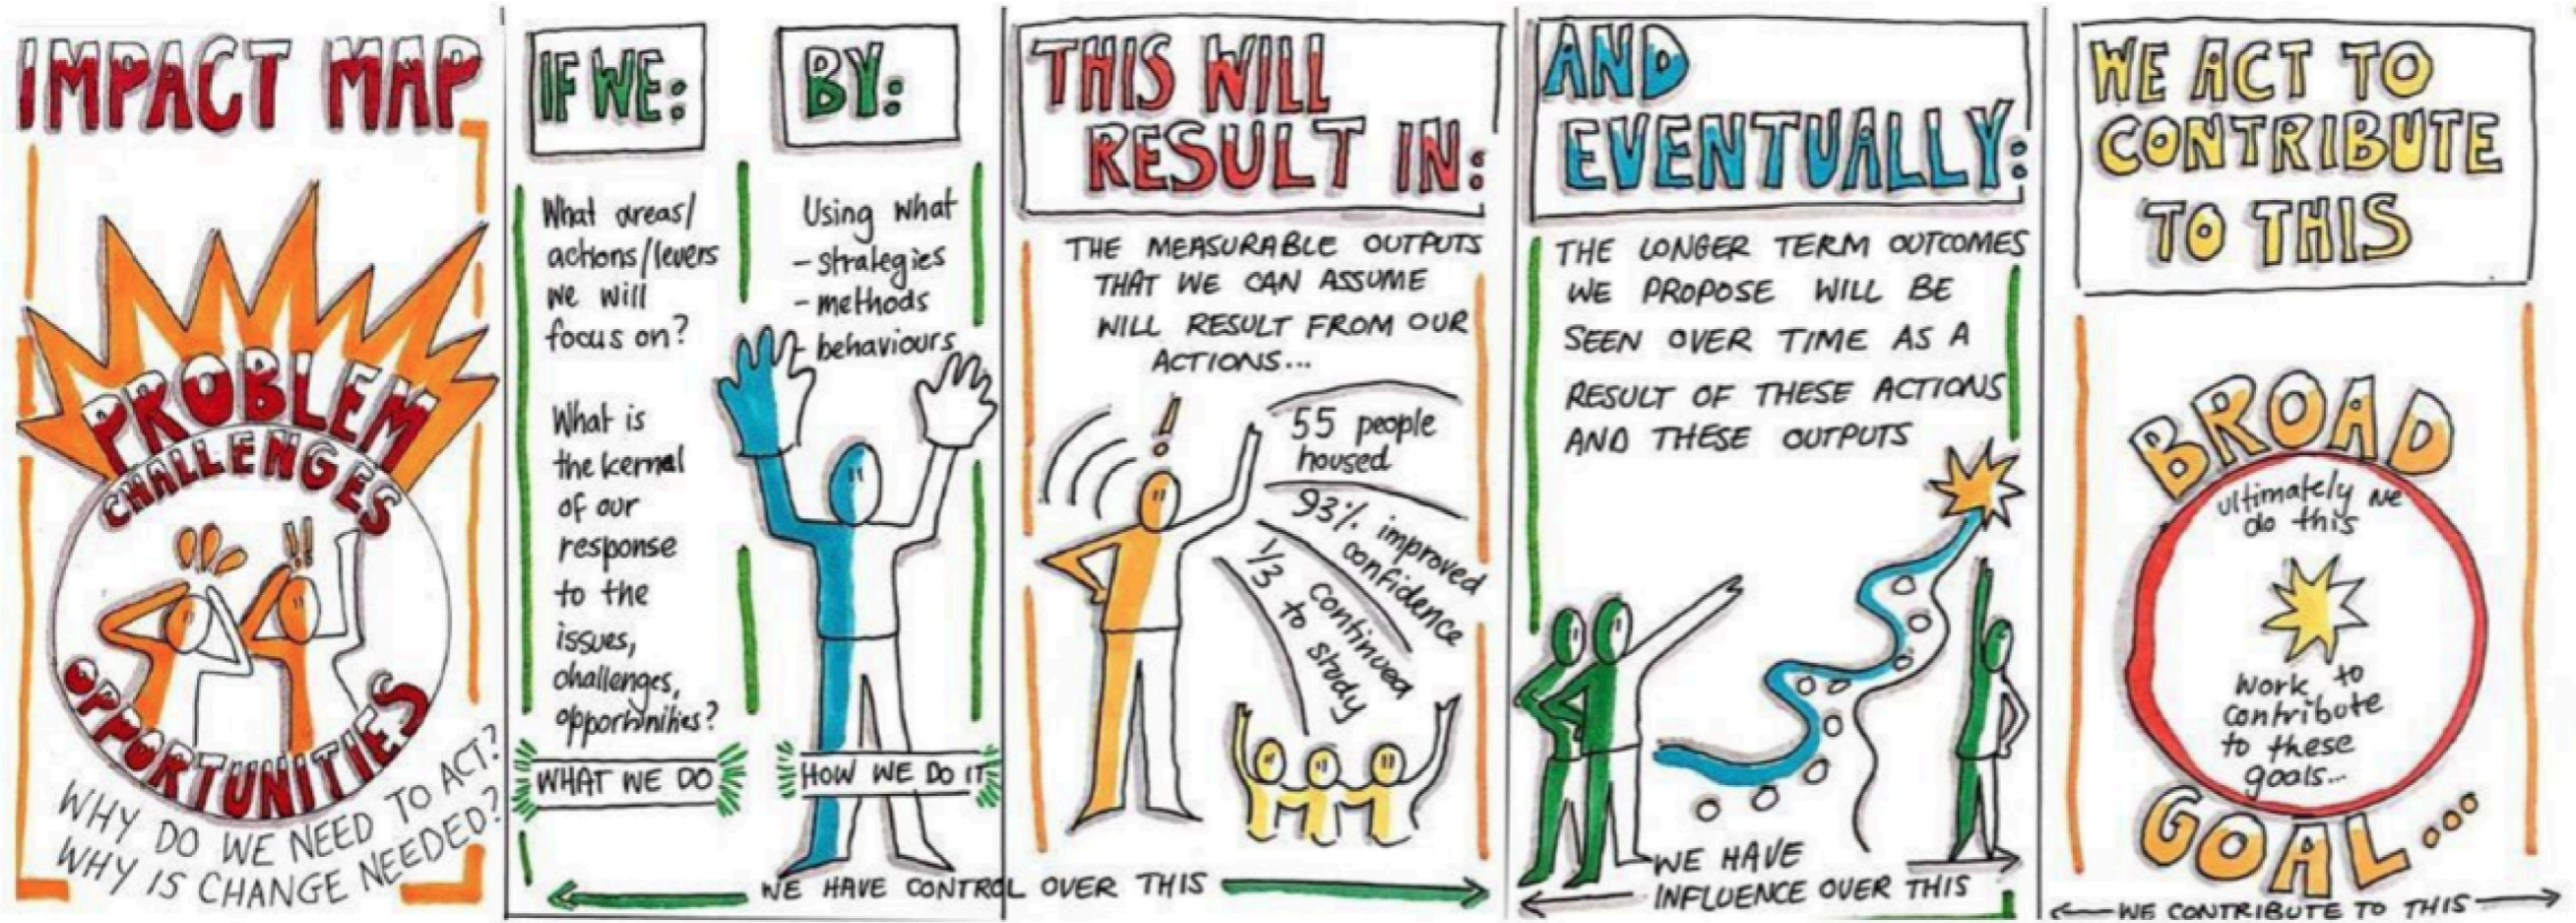 IMPACT MAP
PROBLEM
CHALLENGES
OPPORTUNITIES
WHY DO WE NEED TO ACT?
WHY IS CHANGE NEEDED?
IF WE:
What areas/
actions/levers
we will
focus on?
What is
the kernal
of our
response
to the
issues,
challenges,
opportunities?
WHAT WE DO
BY:
Using what
- strategies
- methods
- behaviours
HOW WE DO IT
THIS WILL
RESULT IN:
THE MEASURABLE OUTPUTS
THAT WE CAN ASSUME
WILL RESULT FROM OUR
ACTIONS...
!
55 people
housed
93% improved
confidence
1/3 continued
to study
WE HAVE CONTROL OVER THIS
AND
EVENTUALLY:
THE LONGER TERM OUTCOMES
WE PROPOSE WILL BE
SEEN OVER TIME AS A
RESULT OF THESE ACTIONS
AND THESE OUTPUTS
WE HAVE
INFLUENCE OVER THIS
WE ACT TO
CONTRIBUTE
TO THIS
BROAD
ultimately we
do this
work to
contribute
to these
goals...
GOAL...
WE CONTRIBUTE TO THIS